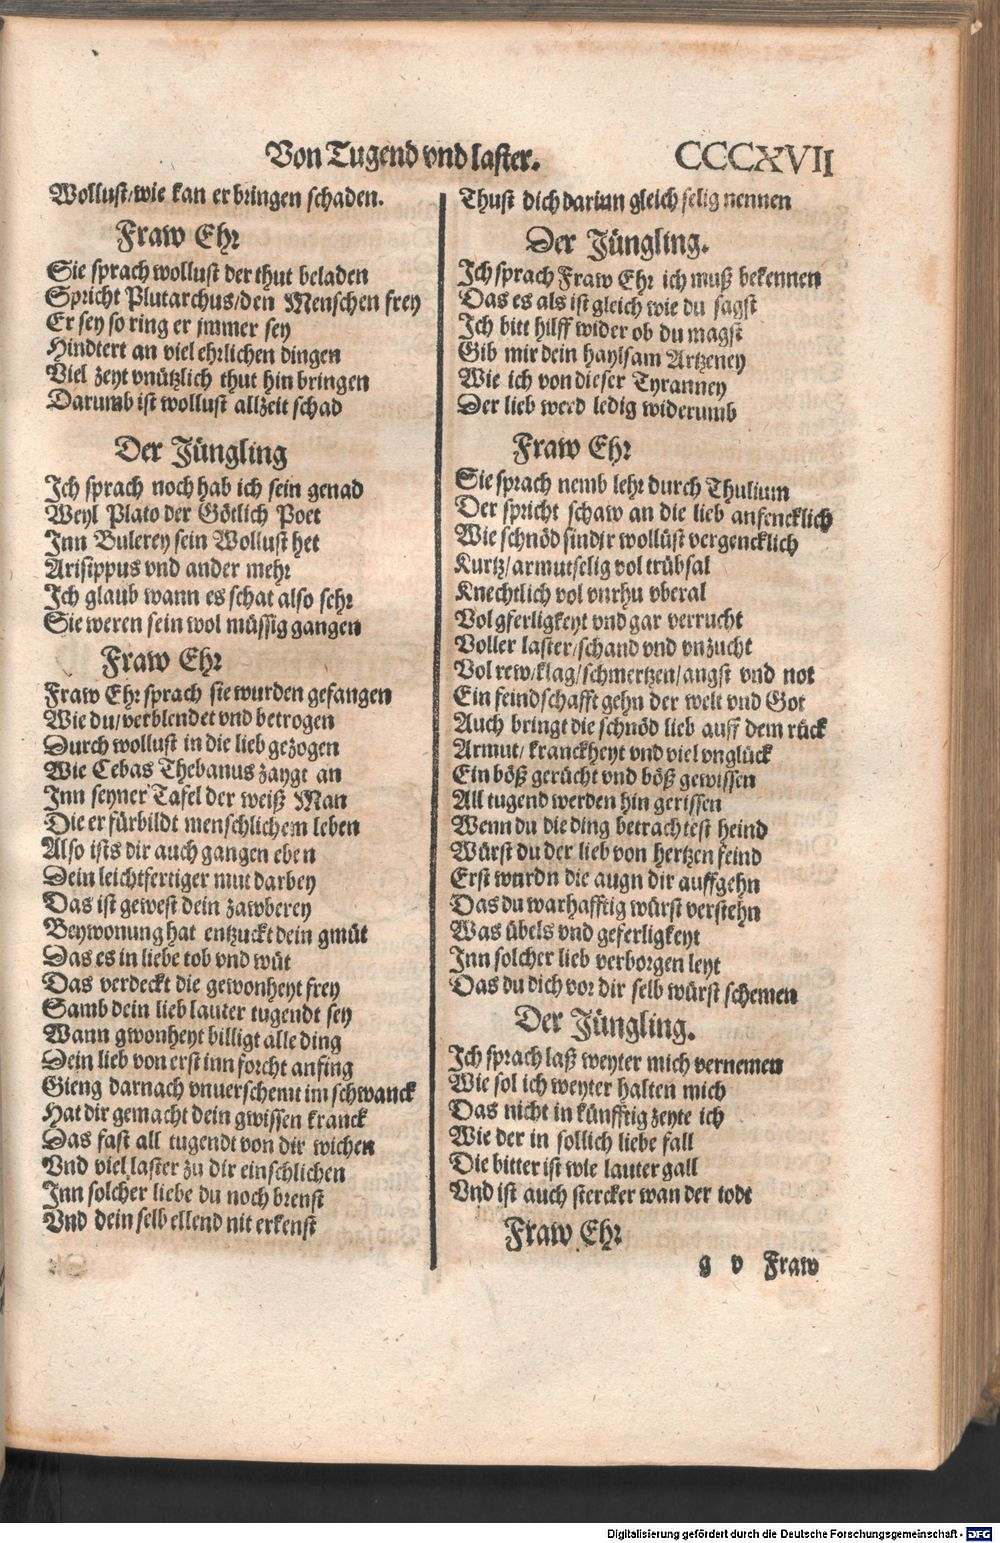 Von Tugend vnd laster.
CCCXVII
Wollust/wie kan er bringen schaden.
Fraw Ehr
Sie sprach wollust der thut beladen
Spricht Plutarchus/den Menschen frey
Er sey so ring er jmmer sey
Hindtert an viel ehrlichen dingen
Viel zeyt vnützlich thut hin bringen
Darumb ist wollust allzeit schad
Der Jüngling
Ich sprach noch hab ich sein genad
Weyl Plato der Götlich Poet
Inn Bulerey sein Wollust het
Arisippus vnd ander mehr
Ich glaub wann es schat also sehr
Sie weren sein wol müssig gangen
Fraw Ehr
Fraw Ehr sprach sie wurden gefangen
Wie du/verblendet vnd betrogen
Durch wollust in die lieb gezogen
Wie Cebas Thebanus zaygt an
Inn seyner Tafel der weiß Man
Die er fürbildt menschlichem leben
Also ists dir auch gangen eben
Dein leichtfertiger mut darbey
Das ist gewest dein zawberey
Beywonung hat entzuckt dein gmüt
Das es in liebe tob vnd wüt
Das verdeckt die gewonheyt frey
Samb dein lieb lauter tugendt sey
Wann gwonheyt billigt alle ding
Dein lieb von erst inn forcht anfing
Gieng darnach vnuerschemt im schwanck
Hat dir gemacht dein gwissen kranck
Das fast all tugendt von dir wichen
Vnd viel laster zu dir einschlichen
Inn solcher liebe du noch brenst
Vnd dein selb ellend nit erkenst
Thust dich darinn gleich selig nennen
Der Jüngling.
Ich sprach Fraw Ehr ich muß bekennen
Das es als ist gleich wie du sagst
Ich bitt hilff wider ob du magst
Gib mir dein haylsam Artzeney
Wie ich von dieser Tyranney
Der lieb werd ledig widerumb
Fraw Ehr
Sie sprach nemb lehr durch Thulium
Der spricht schaw an die lieb anfencklich
Wie schnöd sind jr wollüst vergencklich
Kurtz/armutselig vol trübsal
Knechtlich vol vnrhu vberal
Vol gferligkeyt vnd gar verrucht
Voller laster/schand vnd vnzucht
Vol rew/klag/schmertzen/angst vnd not
Ein feindschafft gehn der welt vnd Got
Auch bringt die schnöd lieb auff dem rück
Armut/kranckheyt vnd viel vnglück
Ein böß gerücht vnd böß gewissen
All tugend werden hin gerissen
Wenn du die ding betrachtest heind
Würst du der lieb von hertzen feind
Erst wurdn die augn dir auffgehn
Das du warhafftig würst verstehn
Was übels vnd geferligkeyt
Inn solcher lieb verborgen leyt
Das du dich vor dir selb würst schemen
Der Jüngling.
Ich sprach laß weyter mich vernemen
Wie sol ich weyter halten mich
Das nicht in künfftig zeyte ich
Wie der in sollich liebe fall
Die bitter ist wie lauter gall
Vnd ist auch stercker wan der todt
Fraw Ehr
g v Fraw
Digitalisierung gefördert durch die Deutsche Forschungsgemeinschaft - DFG